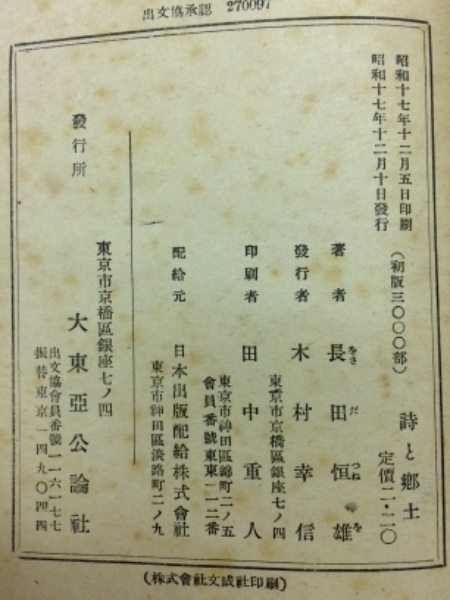 出文協承認 270097
昭和十七年十二月五日印刷
昭和十七年十二月十日發行
(初版三〇〇〇部)
詩と鄕土
定價二・二〇
著者 長田恒雄
をさ だ つね を
發行者 木村幸信
東京市京橋區銀座七ノ四
印刷者 田中重人
東京市神田區錦町二ノ五
會員番號東東一一二番
配給元 日本出版配給株式會社
東京市神田區淡路町二ノ九
發行所
東京市京橋區銀座七ノ四
大東亞公論社
出文協會員番號一一六一七七
振替東京一四九〇四四
(株式會社文成社印刷)